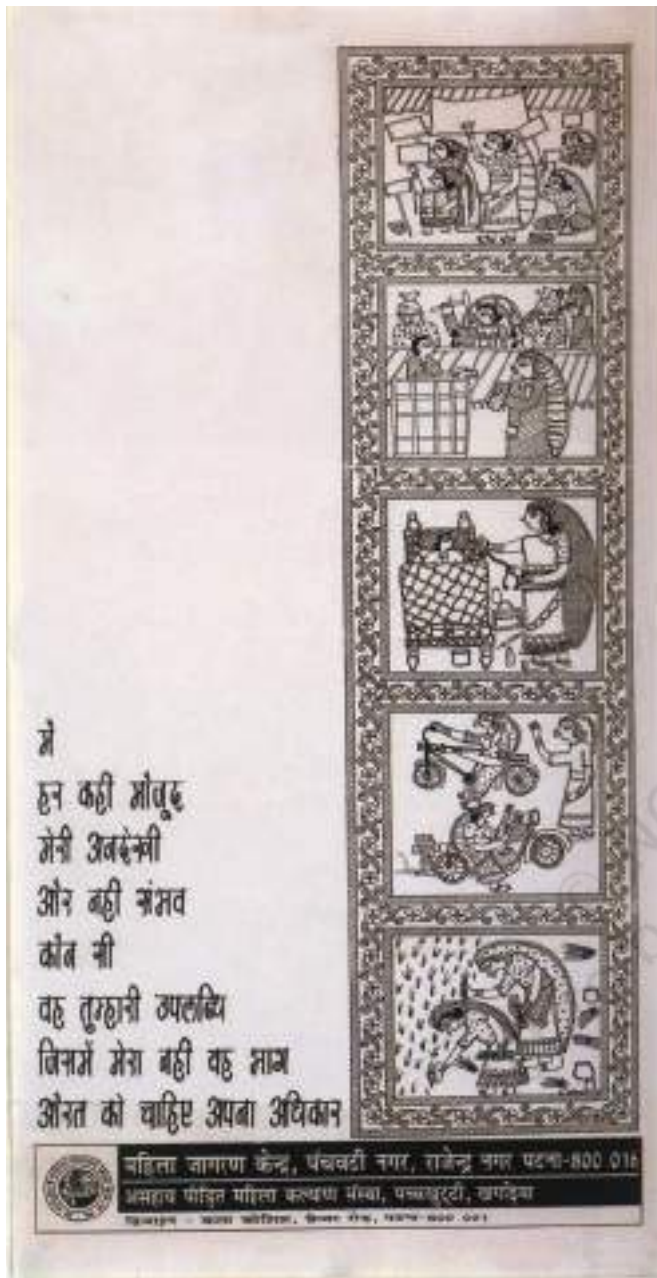 में
हर कहीं मौजूद
मेरी अनदेखी
और नहीं संभव
कौन सी
वह तुम्हारी उपलब्धि
जिसमें मेरा नहीं वह भाग
औरत को चाहिए अपना अधिकार
महिला जागरण केन्द्र, पंचवटी नगर, राजेन्द्र नगर पटना-800 016
असहाय पीड़ित महिला कल्याण संस्था, पचखुट्टी, खगड़िया
डिजाइन -